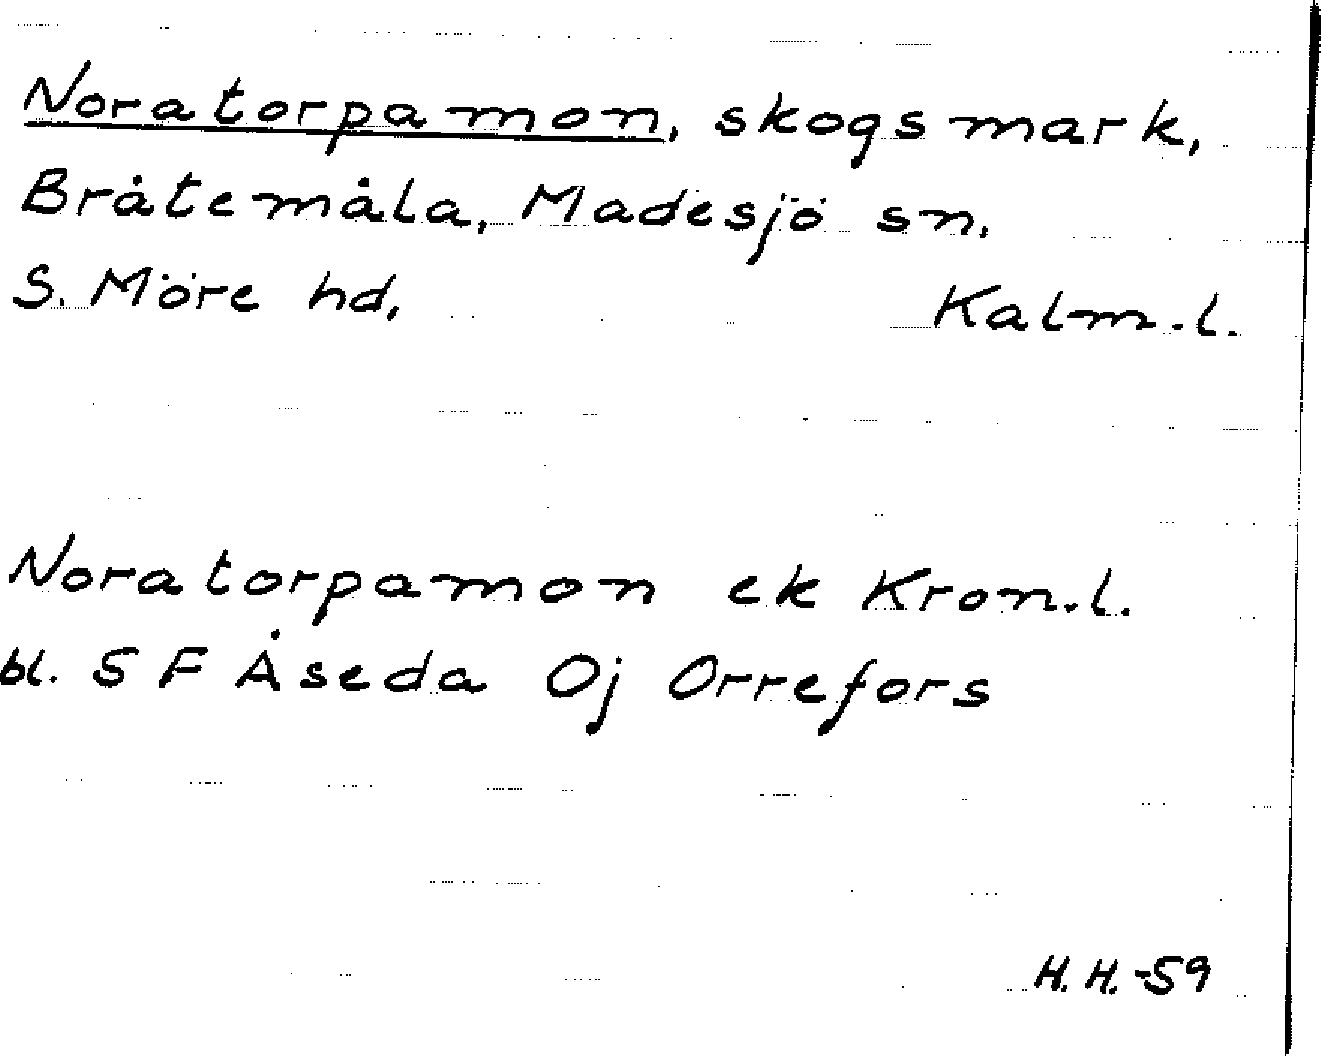 Noratorpamon, skogsmark,
Bråtemåla, Madesjö sn,
S. Möre hd, Kalm.l.
Noratorpamon ek Kron.l.
bl. 5 F Åseda Oj Orrefors
H.H.-59